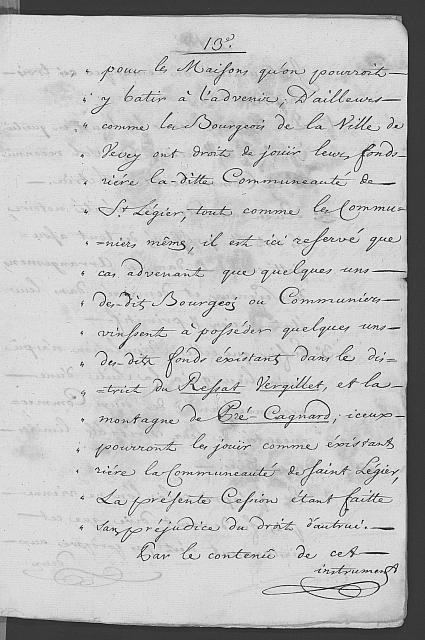 13.º
" pour les Maisons qu'on pourroit
" y batir à l'advenir; D'ailleurs
" comme les Bourgeois de la Ville de
" Vevey ont droit de joüir leurs fonds
" riére la ditte Communeauté de
" St. Légier, tout comme les Commu=
" =niers mêmes, il est ici reservé que
" cas advenant que quelques uns
" des-dits Bourgeois ou Communiers
" vinssent à posséder quelques uns
" des-dits fonds éxistans dans le dis=
" =trict du Ressat Vergillet, et la
" montagne de Pré-Cagnard; iceux
" pourront les joüir comme éxistant
" riére la Communeauté de Saint Légier,
" La présente Cession étant faitte
" sans préjudice du droit d'autrui.
Par le contenû de cet
instrument